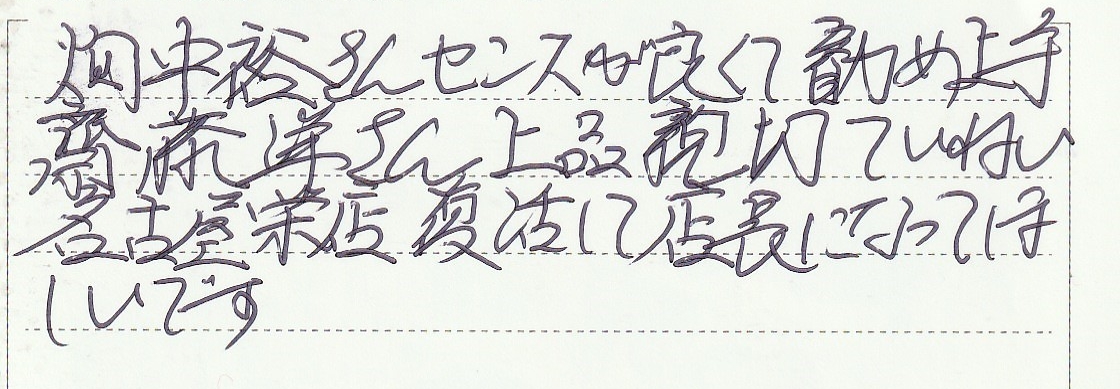 畑中裕さんセンスが良くて勧め上手
齋藤洋さん上品親切ていねい
名古屋栄店復活して店長になってほ
しいです